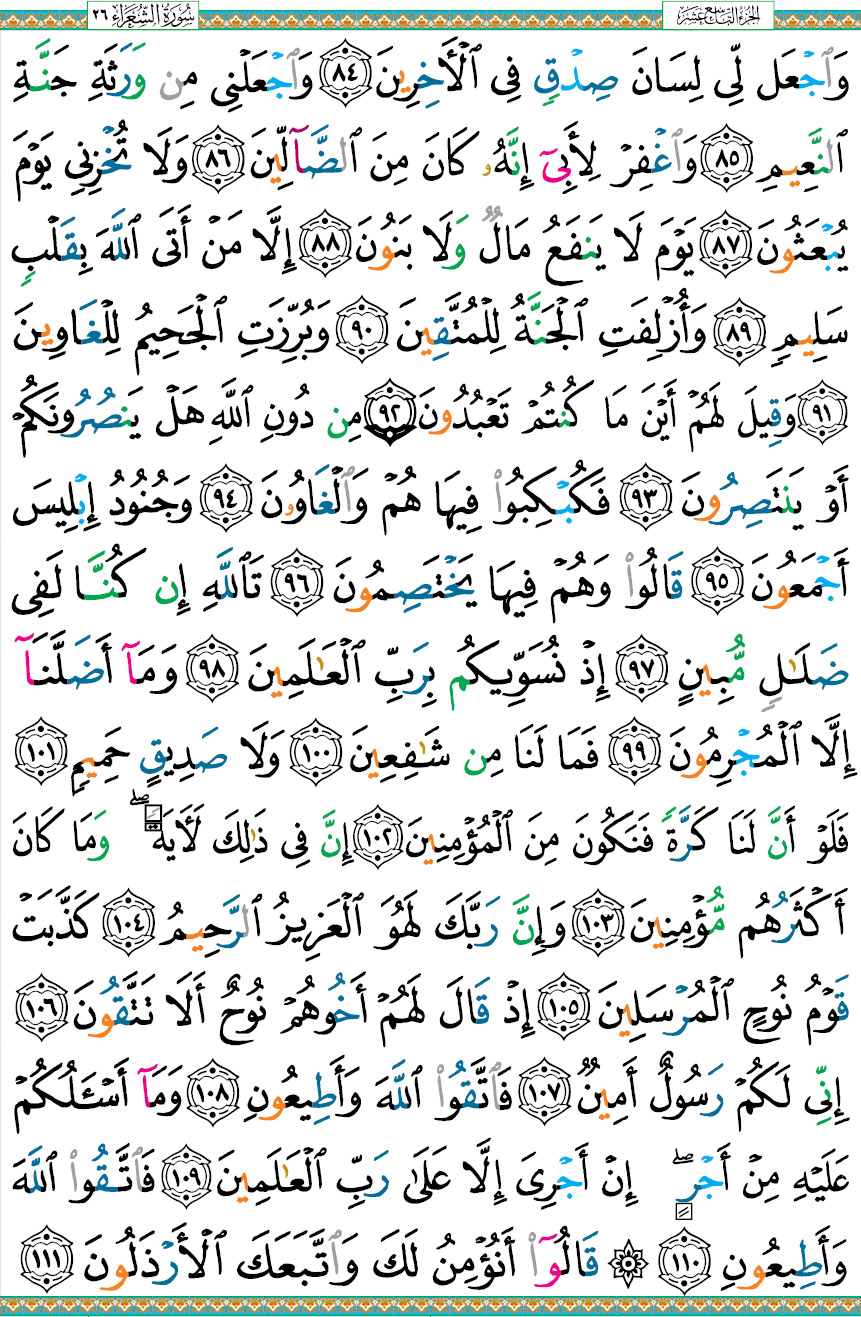 الجزء التاسع عشر سورة الشعراء ٢٦
وَٱجْعَل لِّى لِسَانَ صِدْقٍ فِى ٱلْأَخِرِينَ ٨٤ وَٱجْعَلْنِى مِن وَرَثَةِ جَنَّةِ
ٱلنَّعِيمِ ٨٥ وَٱغْفِرْ لِأَبِىٓ إِنَّهُۥ كَانَ مِنَ ٱلضَّآلِّينَ ٨٦ وَلَا تُخْزِنِى يَوْمَ
يُبْعَثُونَ ٨٧ يَوْمَ لَا يَنفَعُ مَالٌ وَلَا بَنُونَ ٨٨ إِلَّا مَنْ أَتَى ٱللَّهَ بِقَلْبٍ
سَلِيمٍ ٨٩ وَأُزْلِفَتِ ٱلْجَنَّةُ لِلْمُتَّقِينَ ٩٠ وَبُرِّزَتِ ٱلْجَحِيمُ لِلْغَاوِينَ
٩١ وَقِيلَ لَهُمْ أَيْنَ مَا كُنتُمْ تَعْبُدُونَ ٩٢ مِن دُونِ ٱللَّهِ هَلْ يَنصُرُونَكُمْ
أَوْ يَنتَصِرُونَ ٩٣ فَكُبْكِبُوا۟ فِيهَا هُمْ وَٱلْغَاوُۥنَ ٩٤ وَجُنُودُ إِبْلِيسَ
أَجْمَعُونَ ٩٥ قَالُوا۟ وَهُمْ فِيهَا يَخْتَصِمُونَ ٩٦ تَٱللَّهِ إِن كُنَّا لَفِى
ضَلَـٰلٍ مُّبِينٍ ٩٧ إِذْ نُسَوِّيكُم بِرَبِّ ٱلْعَـٰلَمِينَ ٩٨ وَمَآ أَضَلَّنَآ
إِلَّا ٱلْمُجْرِمُونَ ٩٩ فَمَا لَنَا مِن شَـٰفِعِينَ ١٠٠ وَلَا صَدِيقٍ حَمِيمٍ ١٠١
فَلَوْ أَنَّ لَنَا كَرَّةً فَنَكُونَ مِنَ ٱلْمُؤْمِنِينَ ١٠٢ إِنَّ فِى ذَٰلِكَ لَأَيَةً ۖ وَمَا كَانَ
أَكْثَرُهُم مُّؤْمِنِينَ ١٠٣ وَإِنَّ رَبَّكَ لَهُوَ ٱلْعَزِيزُ ٱلرَّحِيمُ ١٠٤ كَذَّبَتْ
قَوْمُ نُوحٍ ٱلْمُرْسَلِينَ ١٠٥ إِذْ قَالَ لَهُمْ أَخُوهُمْ نُوحٌ أَلَا تَتَّقُونَ ١٠٦
إِنِّى لَكُمْ رَسُولٌ أَمِينٌ ١٠٧ فَٱتَّقُوا۟ ٱللَّهَ وَأَطِيعُونِ ١٠٨ وَمَآ أَسْـَٔلُكُمْ
عَلَيْهِ مِنْ أَجْرٍ ۖ إِنْ أَجْرِىَ إِلَّا عَلَىٰ رَبِّ ٱلْعَـٰلَمِينَ ١٠٩ فَٱتَّقُوا۟ ٱللَّهَ
وَأَطِيعُونِ ١١٠ ۞ قَالُوٓا۟ أَنُؤْمِنُ لَكَ وَٱتَّبَعَكَ ٱلْأَرْذَلُونَ ١١١